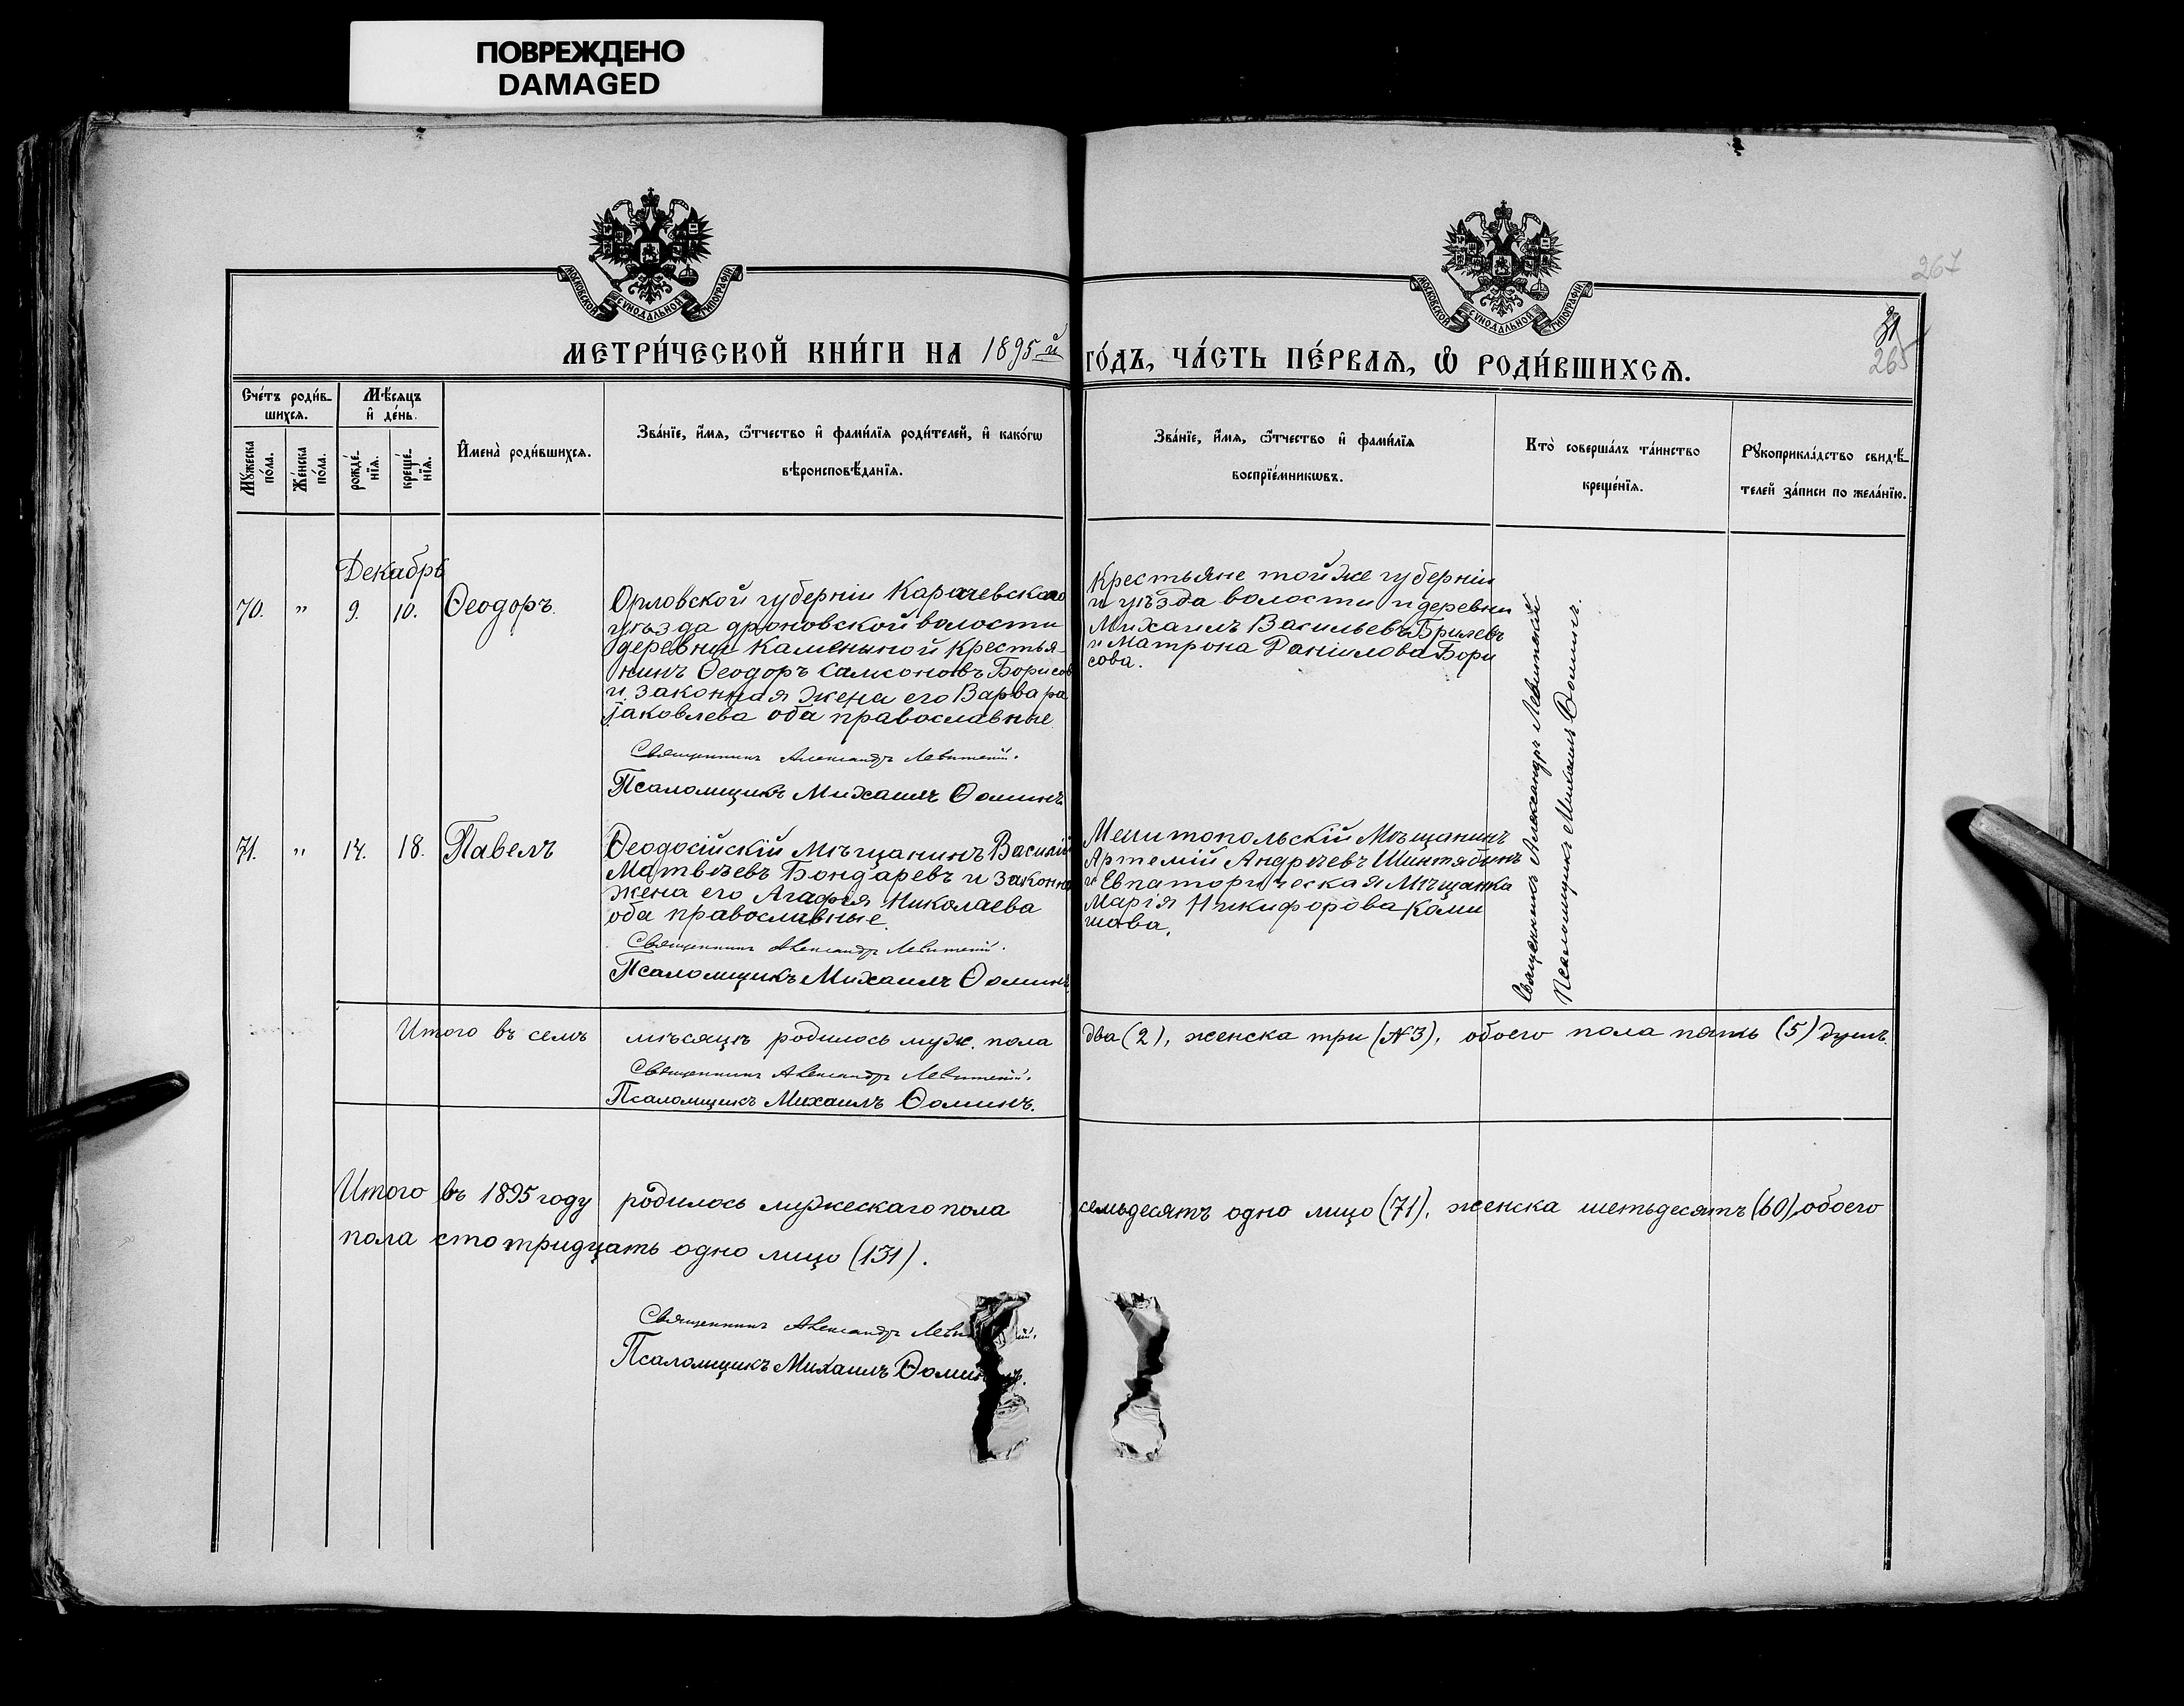 ПОВРЕЖДЕНО
DAMAGED
МОСКОВСКОЙ СѴНОДАЛЬНОЙ ТИПОГРАФІИ
МОСКОВСКОЙ СѴНОДАЛЬНОЙ ТИПОГРАФІИ
267
265
МЕТРИ́ЧЕСКОЙ КНИ́ГИ НА 1895 й
ГО́ДЪ, ЧА́СТЬ ПЕ́РВАѦ, Ѿ РОДИ́ВШИХСѦ.
Сче́тъ роди́в-
шихсѧ.
Мѣ́сѧцъ
и҆ де́нь.
Мꙋ́жеска
по́ла.
Же́нска
по́ла.
рожде́-
нїѧ.
креще́-
нїѧ.
И҆мена̀ роди́вшихсѧ.
Зва́нїе, и҆́мѧ, ѻ҆́тчество и҆ фами́лїѧ роди́телей, и҆ како́гѡ
вѣроисповѣ́данїѧ.
Зва́нїе, и҆́мѧ, ѻ҆́тчество и҆ фами́лїѧ
воспрїе́мникѡвъ.
Кто̀ соверша́лъ та́инство
креще́нїѧ.
Рꙋкоприкла́дство свидѣ́-
телей за́писи по жела́нїю.
Декабрь
70. " 9. 10. Ѳеодоръ.
Орловской губерніи Карачевскаго
уѣзда дроновской волости
деревни Каменыной Крестья-
нинъ Ѳеодоръ Самсоновъ Борисов
и законная жена его Варвара
Іаковлева оба православные
Священникъ Александръ Левитскій.
Псаломщикъ Михаилъ Ѳоминъ
Крестьяне той же губерніи
и уѣзда волости и деревни
Михаилъ Васильевъ Брилевъ
и Матрона Даніилова Бори
сова.
71. " 14. 18. Павелъ
Ѳеодосійскій Мѣщанинъ Василій
Матвѣевъ Бондаревъ и законна
жена его Агафія Николаева
оба православные.
Священникъ Александръ Левитскій.
Псаломщикъ Михаилъ Ѳоминъ.
Мелитопольскій Мѣщанинъ
Артемій Андреевъ Шинтябинъ
и Евпаторическая Мѣщанка
Марія Никифорова Коми
шова.
Священникъ Александръ Левитскій
Псаломщикъ Михаилъ Ѳоминъ.
Итого въ семъ мѣсяцѣ родилось муж. пола два (2), женска три (№3), обоего пола пять (5) душъ.
Священникъ Александръ Левитскій.
Псаломщикъ Михаилъ Ѳоминъ.
Итого въ 1895 году родилось мужескаго пола семьдесятъ одно лицо (71), женска шетьдесятъ (60), обоего
пола сто тридцать одно лицо (131).
Священникъ Александръ
Псаломщикъ Михаилъ Ѳоминъ.